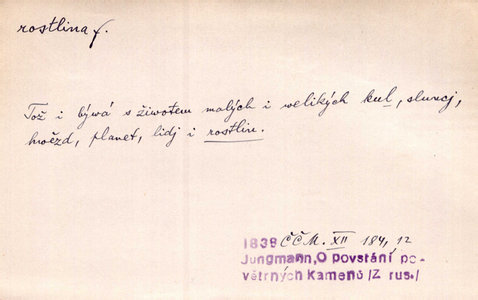 rostlina f.
Tož i bývá s životem malých i velikých kul, sluncj,
hwězd, planet, lidj i rostlin.
1838 ČČM. XII 184, 12
Jungmann, O povstání po-
větrných kamenů /Z rus./